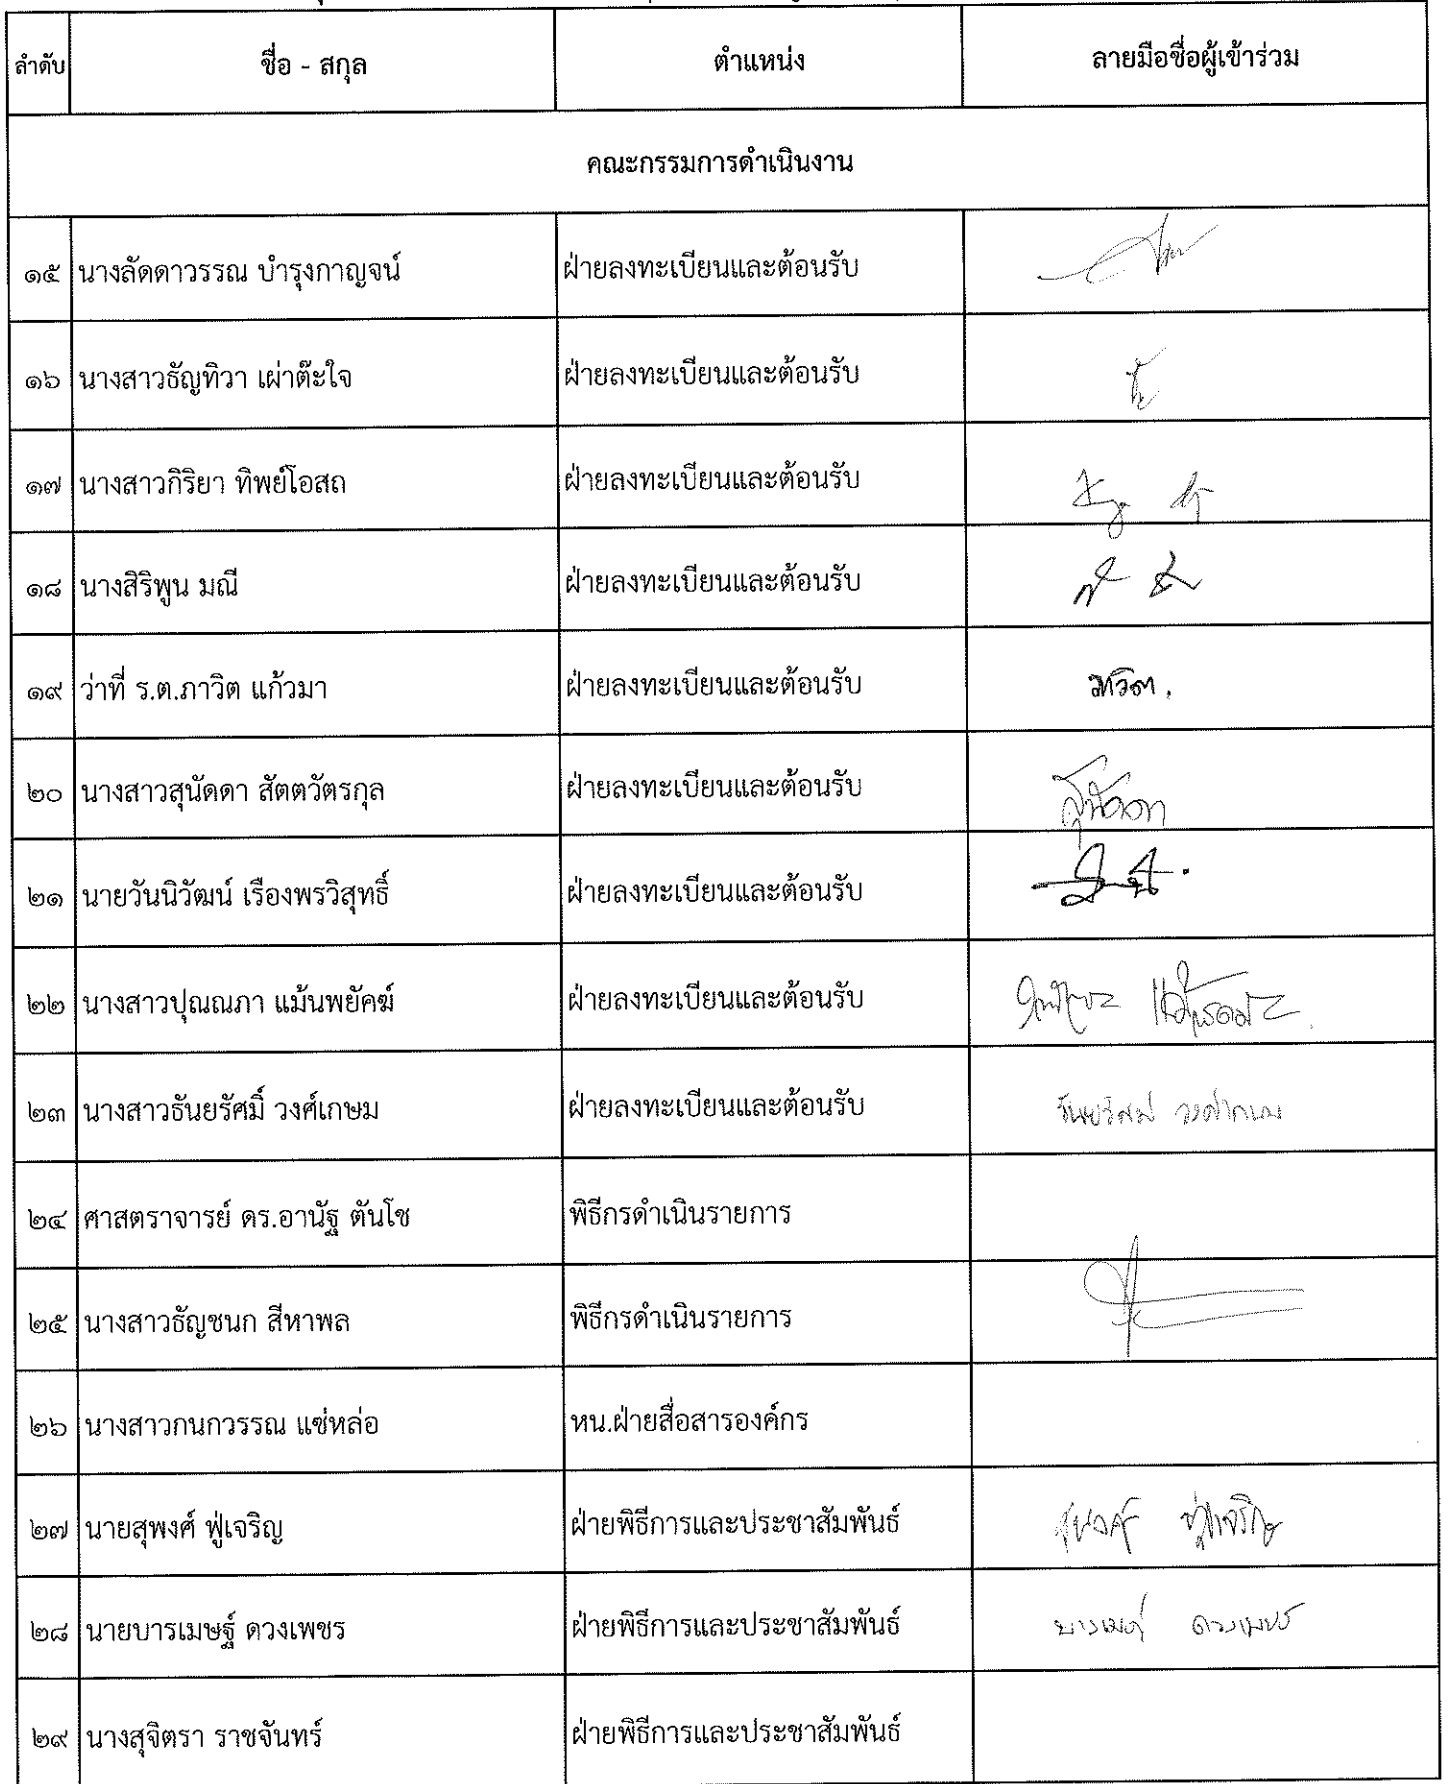 ลำดับ ชื่อ - สกุล ตำแหน่ง ลายมือชื่อผู้เข้าร่วม
คณะกรรมการดำเนินงาน
๑๕ นางลัดดาวรรณ บำรุงกาญจน์ ฝ่ายลงทะเบียนและต้อนรับ
๑๖ นางสาวธัญทิวา เผ่าต๊ะใจ ฝ่ายลงทะเบียนและต้อนรับ
๑๗ นางสาวกิริยา ทิพย์โอสถ ฝ่ายลงทะเบียนและต้อนรับ
๑๘ นางสิริพูน มณี ฝ่ายลงทะเบียนและต้อนรับ
๑๙ ว่าที่ ร.ต.ภาวิต แก้วมา ฝ่ายลงทะเบียนและต้อนรับ ภาวิต.
๒๐ นางสาวสุนัดดา สัตตวัตรกุล ฝ่ายลงทะเบียนและต้อนรับ สุนัดดา
๒๑ นายวันนิวัฒน์ เรืองพรวิสุทธิ์ ฝ่ายลงทะเบียนและต้อนรับ
๒๒ นางสาวปุณณภา แม้นพยัคฆ์ ฝ่ายลงทะเบียนและต้อนรับ
๒๓ นางสาวธันยรัศมิ์ วงศ์เกษม ฝ่ายลงทะเบียนและต้อนรับ ธันยรัศมิ์ วงศ์เกษม
๒๔ ศาสตราจารย์ ดร.อานัฐ ตันโช พิธีกรดำเนินรายการ
๒๕ นางสาวธัญชนก สีหาพล พิธีกรดำเนินรายการ
๒๖ นางสาวกนกวรรณ แซ่หล่อ หน.ฝ่ายสื่อสารองค์กร
๒๗ นายสุพงศ์ ฟู่เจริญ ฝ่ายพิธีการและประชาสัมพันธ์ สุพงศ์ ฟู่เจริญ
๒๘ นายบารเมษฐ์ ดวงเพชร ฝ่ายพิธีการและประชาสัมพันธ์ บารเมษฐ์ ดวงเพชร
๒๙ นางสุจิตรา ราชจันทร์ ฝ่ายพิธีการและประชาสัมพันธ์